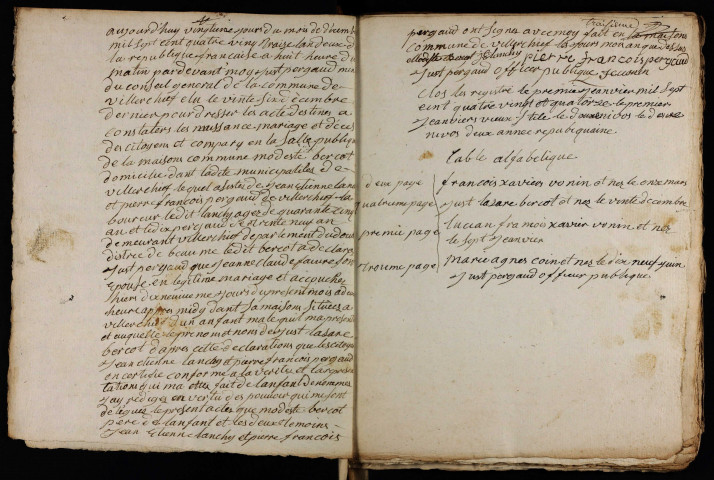 aujourd'huy vingt une jours du mois de décembre
mil sept cent quatre ving traise lan deux de
la republique francaise a huit heure du
matin pardevant moy Just pergaud
du conseil general de la commune de
villerchief elu le vinte six décembre
dernier pour dresser les acte destines a
constaters les nussance mariage et déces
des citoyens et compary en la salle publique
de la maisons commune modeste bercot
domicilie dant ladite municipalites de
villerchief lequel assiste de jean etienne lanchy
et pierre francois pergaud de villerchief la
boureur ledit lanchy agez de quarante cinq
an et ledit pergaud de trente neuf an
demeurant villerchief departement du doub
distre de beaume ledit bercot a declarez a
Just pergaud que Jeanne Claude faivre son
epouse en legitime mariage et accouchez
hiers dixneuvieme jours du present mois a deux
heure apres midy dant sa maisons situees a
villerchief d'un anfant male quil ma presente
et auquelle le prenom et nom de Just lasare
bercot d'apres cette declarations que les citoyens
Jean etienne lanchy et pierre francois pergaud
on certifie conforme a la verite et la represen
tations qui ma ettes fait de lanfant denommes
Jay rédiger en vertu des pouvoir qui me sont
delegues le present acte que modeste bercot
pere de lanfant et les deux temoins
Jean Etienne lanchy et pierre francois
troisieme
pergaud ont signes avec moy fait en la maisons
commune de villerchief la jours mon an que dessus
modeste bercot J E lanchy pierre francois pergaud
Just pergaud officier publique
Clos le registre le premier Jeanvier mil sept
cent quatre vingt et quatorze le premier
Jeanviers vieux stile le douze nivos le deux
nivos deux annee republiquaine
table alfabetique
deux page francois xaviers vonin et nez le onze mars
quatrieme page Just lasare bercot et nez le vinte decembre
premie page lucian francois xavier vonin et nez
le sept Jeanvier
troisieme page marie agnes coin et nez le dix neuf juin
Just pergaud officier publique